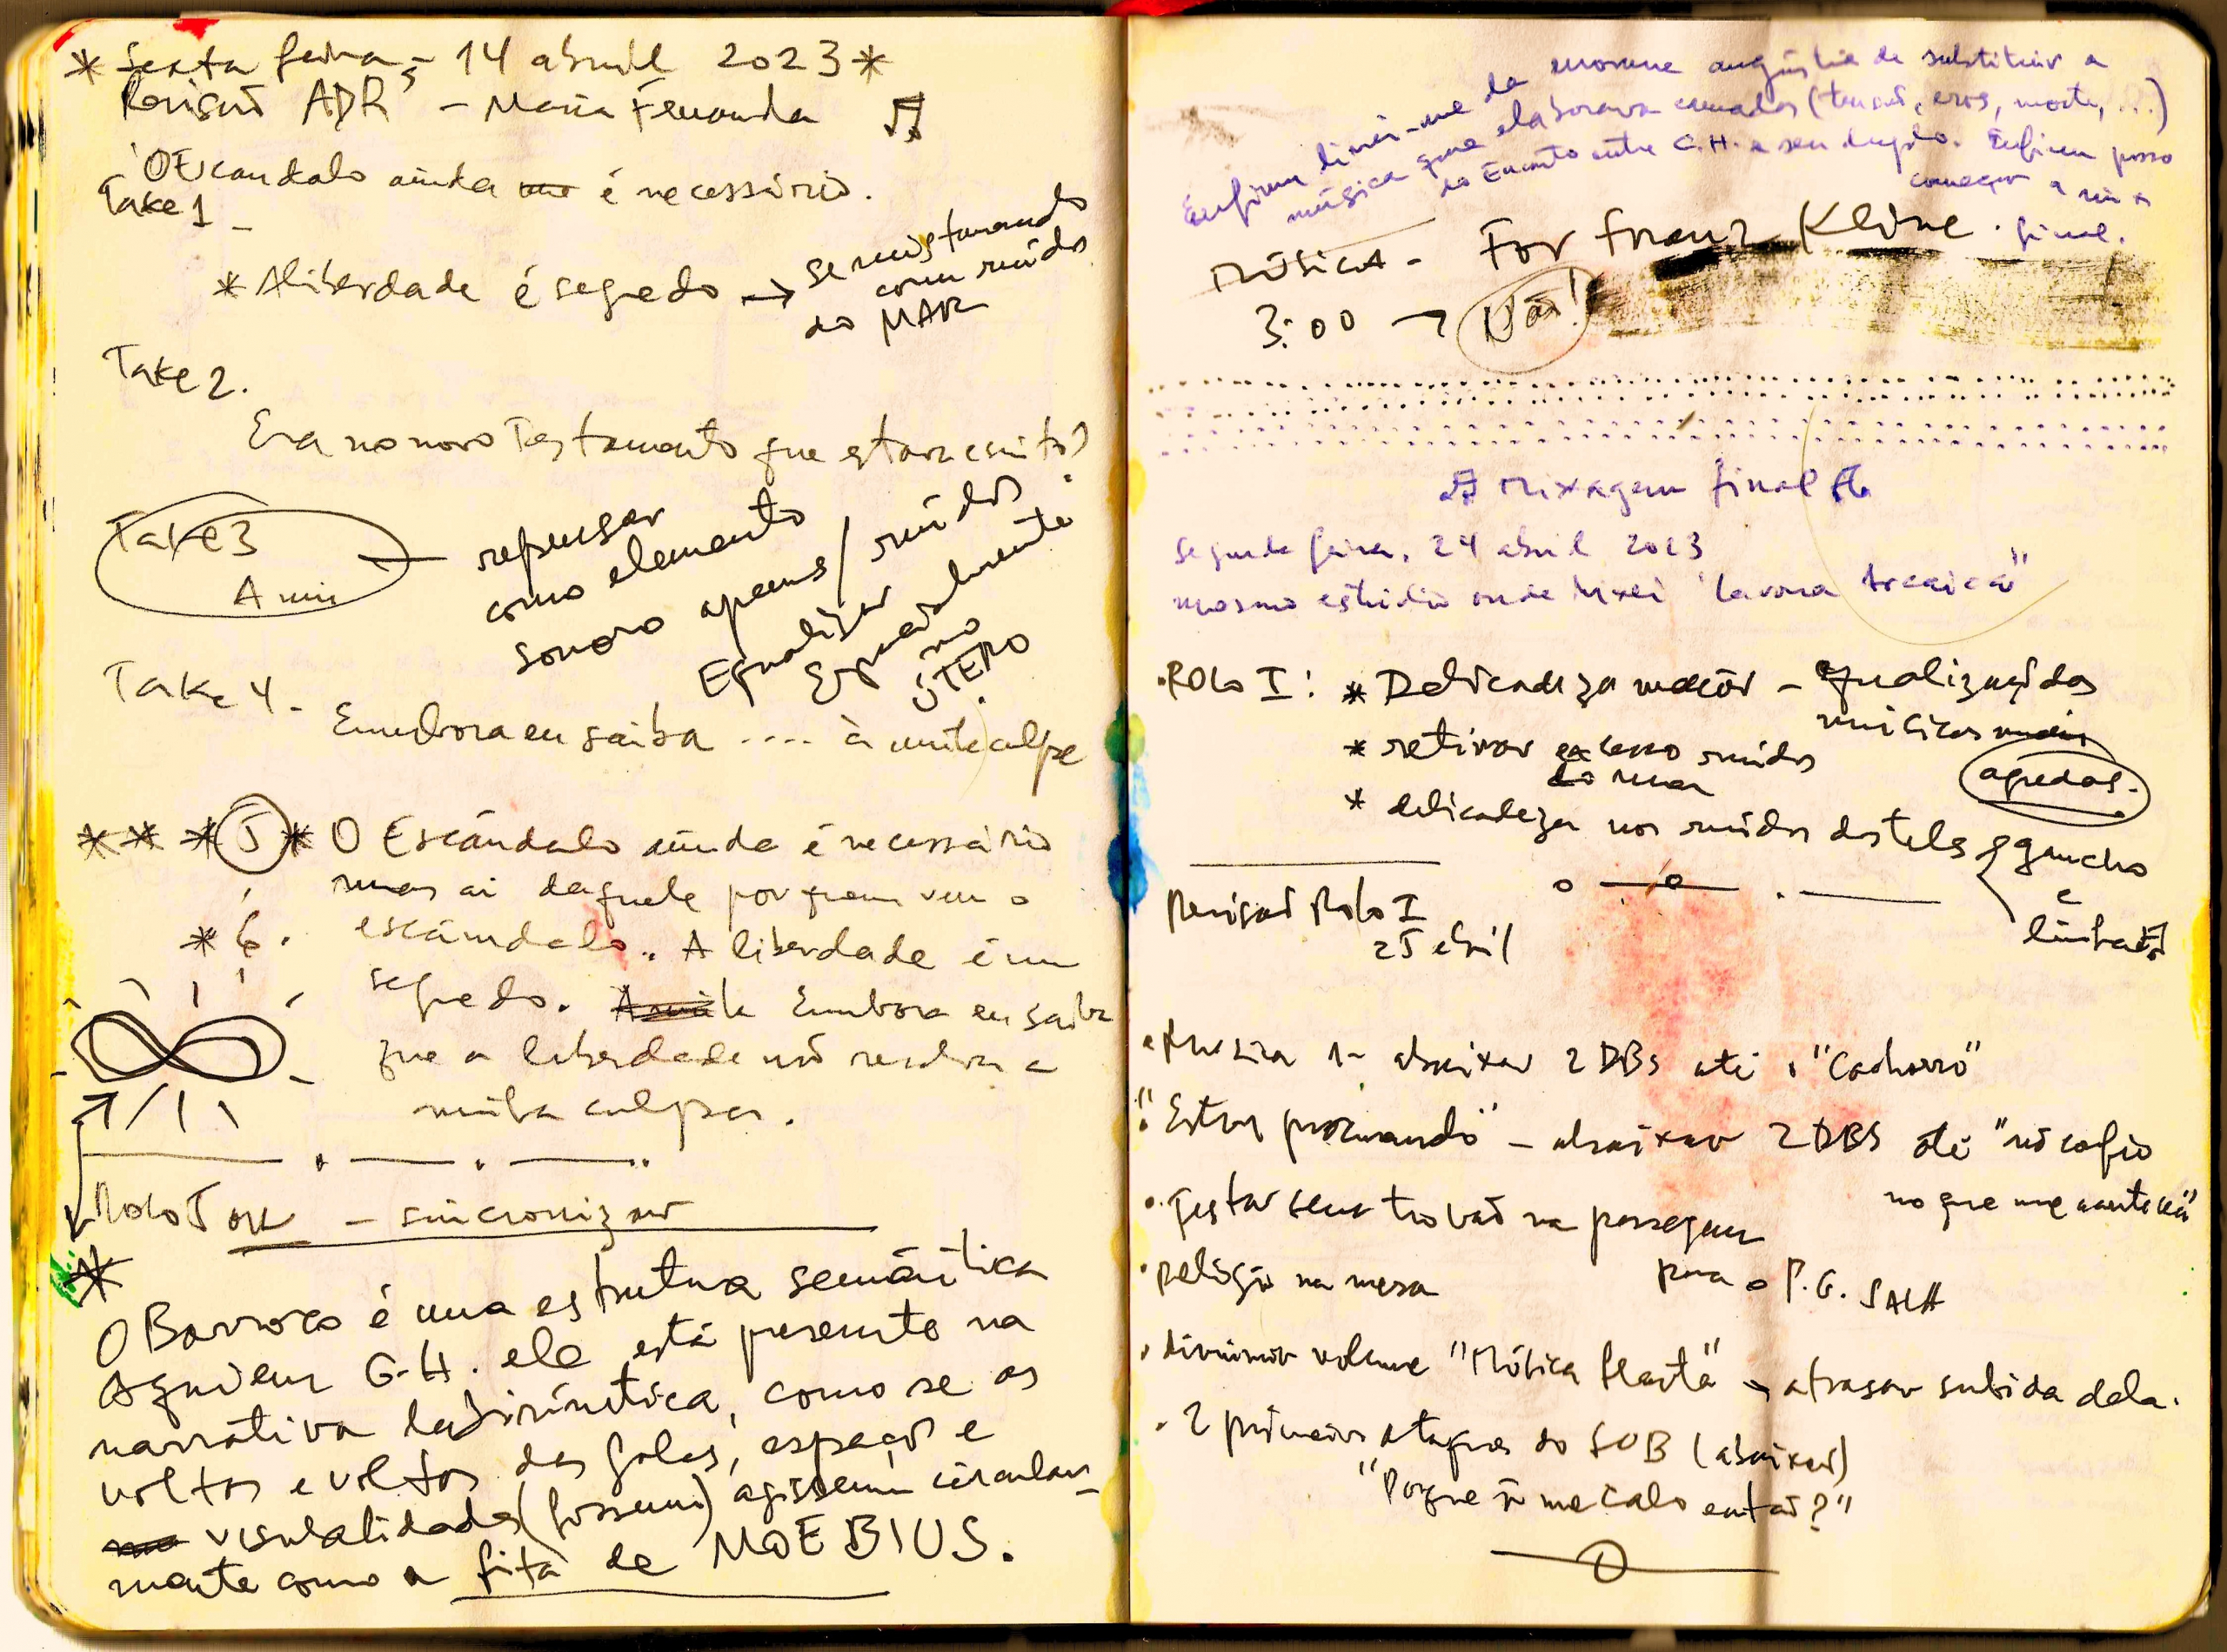 * Sexta feira, - 14 abril 2023 *
Revisão ADR's - Maria Fernanda
O Escandalo ainda é necessário.
Take 1 -
* A liberdade é segredo → se misturando
com ruídos
do MAR
Take 2.
Era no novo Testamento que estava escrito?
Take 3
A mim
repensar
como elemento
sonoro apenas / ruídos
Equalizar
Espacialmente
no
ÚTERO
Take 4 - Embora eu saiba .... à minha culpa
* * * 5 * O Escândalo ainda é necessário
mas ai daquele por quem vem o
* 6. escândalo. A liberdade é um
segredo. Embora eu saiba
que a liberdade não resolva a
minha culpa.
Rolo I ou - sincronizar
*
O Barroco é uma estrutura semântica
Aqui em G.H. ele está presente na
narrativa labiríntica, como se as
voltas e voltas das falas, espaço e
visualidades (fossem) agissem circular-
mente como a fita de MOEBIUS.
Enfim livrei-me da enorme angústia de substituir a
música que elaborava camadas (tensão, eros, morte, ...)
do Encontro entre G.H. e seu duplo. Enfim posso
começar a mix
final.
Música - For Franz Kline.
3:00 → Não!
Mixagem final
Segunda feira, 24 abril 2023
mesmo estúdio onde mixei "Lavoura Arcaica"
• ROLO I: * Delicadeza maior - equalização das
músicas
agudas.
* retirar excesso ruídos
do mar
* delicadeza nos ruídos das telas gancho
e
linha
Revisão Rolo I
25 abril
• Música 1 - abaixar 2 DBs até "Cachorro"
• "Estou procurando" - abaixar 2 DBS até "não confio
no que me aconteceu"
• Testar sem trovão na passagem
para o P.G. SALA
• relógio na mesa
• diminuir volume "Música Flauta" → atrasar subida dela.
• 2 primeiros ataques do SUB (abaixar)
"Porque ñ me calo então?"